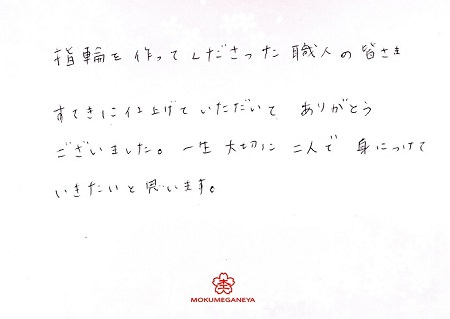 指輪を作ってくださった職人の皆さま
すてきに仕上げていただいて ありがとう
ございました。一生大切に二人で身につけて
いきたいと思います。
MOKUMEGANEYA